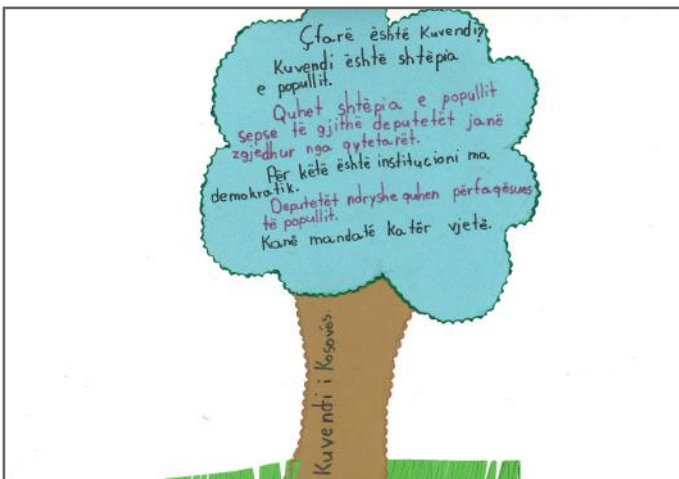 Çfarë është Kuvendi?
Kuvendi është shtëpia
e popullit.
Quhet shtëpia e popullit
sepse të gjithë deputetët janë
zgjedhur nga qytetarët.
Për këtë është institucioni ma
demokratik.
Deputetët ndryshe quhen përfaqësues
të popullit.
Kanë mandatë katër vjetë.
Kuvendi i Kosovës.